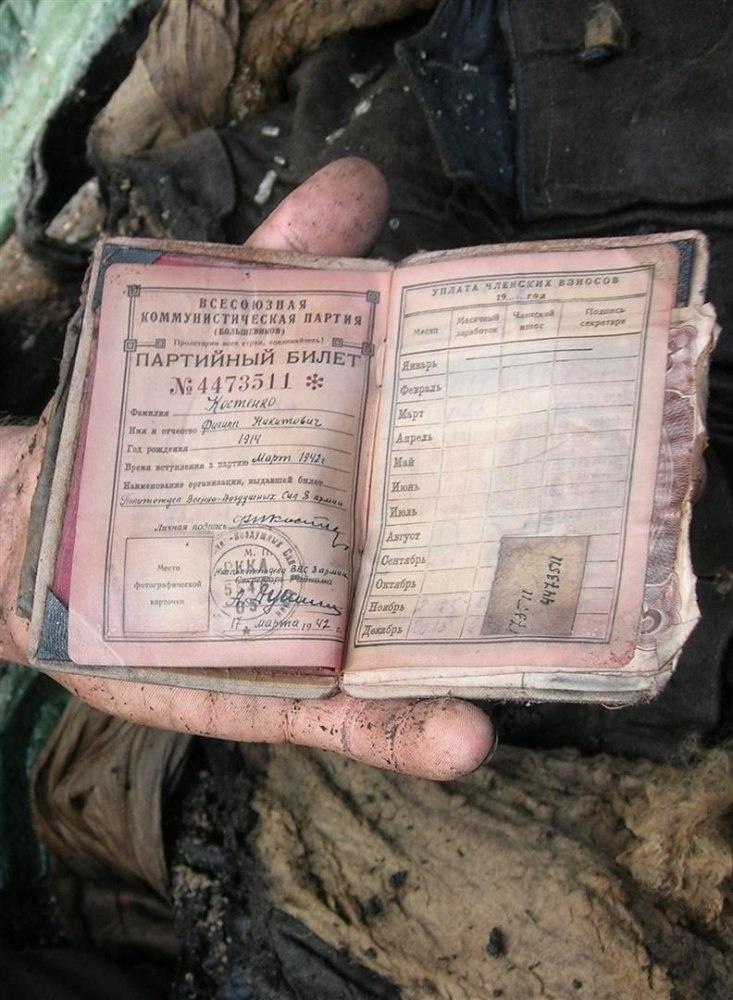 ВСЕСОЮЗНАЯ
КОММУНИСТИЧЕСКАЯ ПАРТИЯ
(БОЛЬШЕВИКОВ)
Пролетарии всех стран, соединяйтесь!
ПАРТИЙНЫЙ БИЛЕТ
№ 4473511 *
Фамилия Костенко
Имя и отчество Филипп Никитович
Год рождения 1914
Время вступления в партию Март 1942г
Наименование организации, выдавшей билет
Политотдел Военно-Воздушных Сил 8 армии
Личная подпись
Место
фотографической
карточки
М. П.
РККА
Секретарь Райкома
17 марта 1942 г.
УПЛАТА ЧЛЕНСКИХ ВЗНОСОВ
19 год
Месяц Месячный заработок Членский взнос Подпись секретаря
Январь
Февраль
Март
Апрель
Май
Июнь
Июль
Август
Сентябрь
Октябрь
Ноябрь
Декабрь
4473511